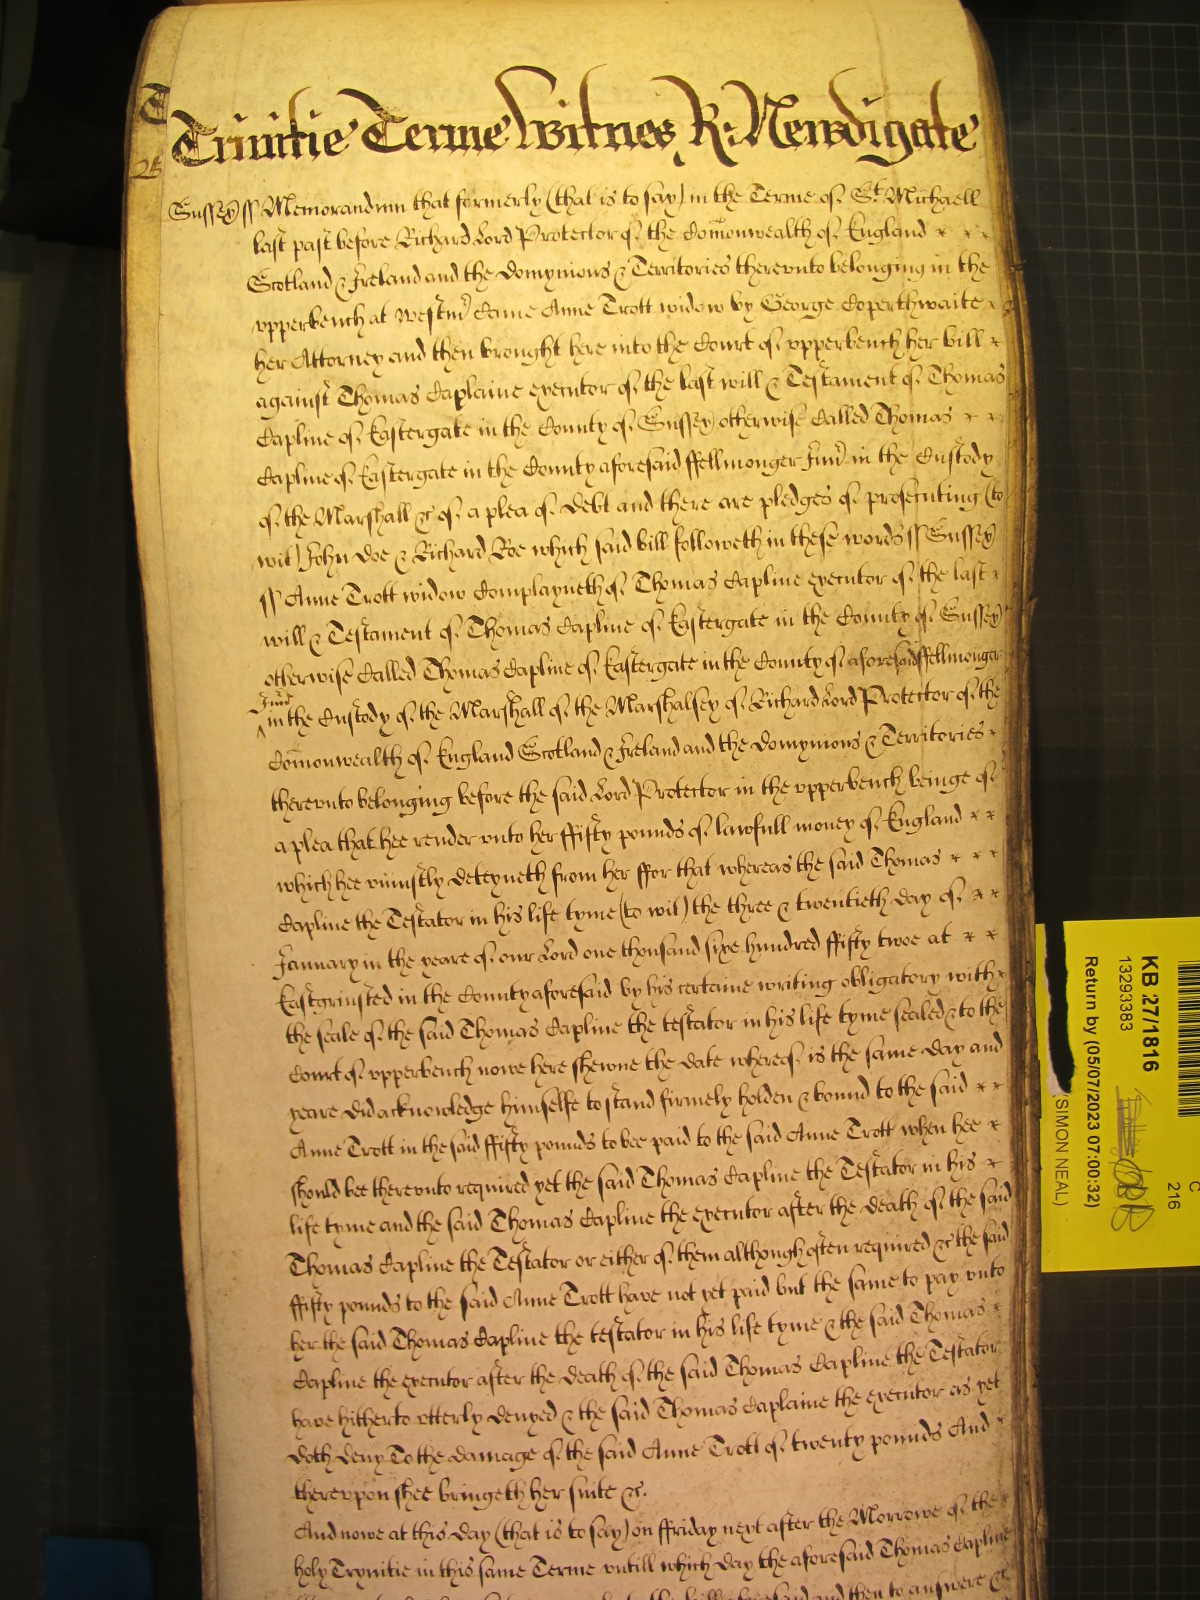 Trinitie Terme Witnes R: Newdigate
Sussex ss Memorandum that formerly (that is to say) in the Terme of St. Michaell
last past before Richard Lord Protector of the Comonwealth of England
Scotland & Ireland and the Domynions & Territories therevnto belonging in the
vpperbench at Westmr Came Anne Trott widow by George Coperthwaite
her Attorney and then brought here into the Court of vpperbench her bill
against Thomas Caplaine executor of the last will & Testament of Thomas
Capline of Eastergate in the County of Sussex otherwise Called Thomas
Capline of Eastergate in the County aforesaid ffellmonger Junr in the Custody
of the Marshall &c of a plea of Debt and there are pledges of prosecuting (to
wit) John Doe & Richard Roe which said bill followeth in these words ss Sussex
ss Anne Trott widow Complayneth of Thomas Capline executor of the last
will & Testament of Thomas Capline of Eastergate in the County of Sussex
otherwise Called Thomas Capline of Eastergate in the County of aforesaid ffellmonger
Junr
in the Custody of the Marshall of the Marshalsey of Richard Lord Protector of the
Comonwealth of England Scotland & Ireland and the Domynions & Territories
therevnto belonging before the said Lord Protector in the vpperbench beinge of
a plea that hee render vnto her ffifty pounds of lawfull money of England
which hee viniustly deteyneth from her ffor that whereas the said Thomas
Capline the Testator in his life tyme (to wit) the three & twentieth day of
January in the yeare of our Lord one thousand sixe hundred ffifty twoe at
Eastgrinsted in the County aforesaid by his certaine writing obligatory with
the seale of the said Thomas Capline the testator in his life tyme sealed & to the
Court of vpperbench nowe here shewne the date whereof is the same day and
yeare did acknowledge himselfe to stand firmely holden & bound to the said
Anne Trott in the said ffifty pounds to bee paid to the said Anne Trott when hee
should bee therevnto required yet the said Thomas Capline the Testator in his
life tyme and the said Thomas Capline the executor after the death of the said
Thomas Capline the Testator or either of them although often required &c the said
ffifty pounds to the said Anne Trott have not yet paid but the same to pay vnto
her the said Thomas Capline the testator in his life tyme & the said Thomas
Capline the executor after the death of the said Thomas Capline the Testator
have hitherto vtterly denyed & the said Thomas Caplaine the executor as yet
doth deny To the damage of the said Anne Trott of twenty pounds And
therevpon shee bringeth her suite &c.
And nowe at this day (that is to say) on ffriday next after the Morrowe of the
holy Trynitie in this same Terme vntill which day the aforesaid Thomas Capline
and then to answere &c
KB 27/1816
13293383
Return by (05/07/2023 07:00:32)
SIMON NEAL)
C
216